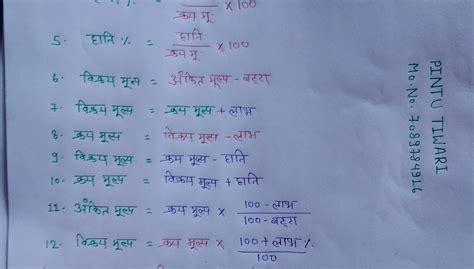 × 100
क्रय मू.
5. हानि % = हानि / क्रय मू. × 100
6. विक्रय मूल्य = अंकित मूल्य - बट्टा
7. विक्रय मूल्य = क्रय मूल्य + लाभ
8. क्रय मूल्य = विक्रय मूल्य - लाभ
9. विक्रय मूल्य = क्रय मूल्य - हानि
10. क्रय मूल्य = विक्रय मूल्य + हानि
11. अंकित मूल्य = क्रय मूल्य × 100 - लाभ / 100 - बट्टा
12. विक्रय मूल्य = क्रय मूल्य × 100 + लाभ % / 100
PINTU TIWARI
Mo.No. 7089784916